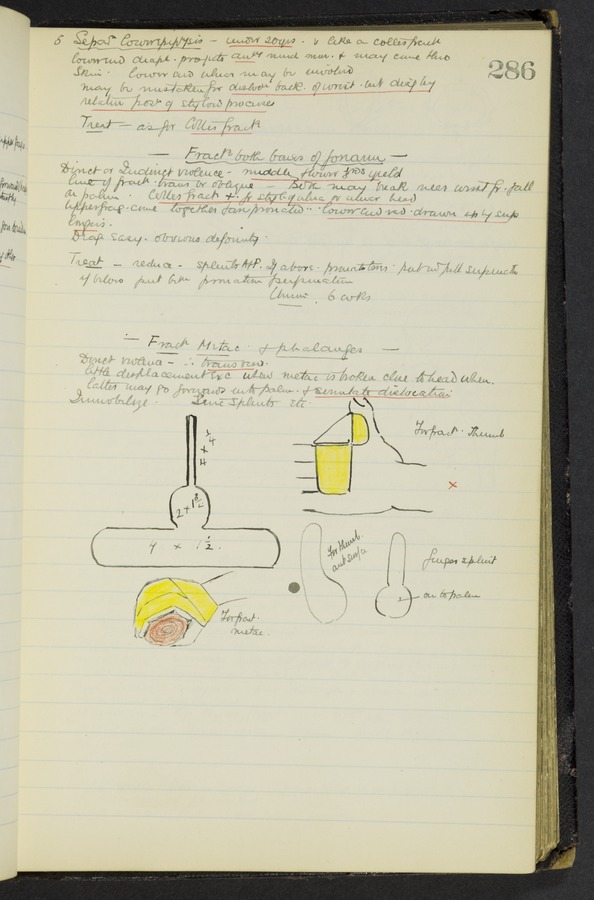 286
6 Separ low epiphysis - under 20 yrs. v like a colles fract
lower end diaph. projects ant & may come thro
Skin. lower end ulna may be involved
may be mistaken for dislocn back. of wrist. but diag by
relative posn of styloid processes
Treat - as for Colles fract
— Fract both bones of forearm —
Direct or Indirect violence - middle & lower 3rds yield
line of fract. trans or oblique - Both may break near wrist fr. fall
on palm. Colles fract + fr styloid ulna or ulnar head
Upper frag. come together & pronated lower end rad. drawn up by sup
longus.
Diag easy. obvious deformity.
Treat - reduce. splints A&P. If above pronator teres put in full supination
if below put btw pronation & supination
Union. 6 wks
— Fract Metac. & phalanges —
Direct violence - ∴ transverse.
little displacement exc when metac is broken close to head when
latter may go forwards into palm. & simulate dislocation
Immobilize. Splints etc.
4 x ¼
2 x 1½
4 x 1½.
For fract. Thumb
x
For thumb
ant surface
finger splint
on to palm
For fract.
metac.